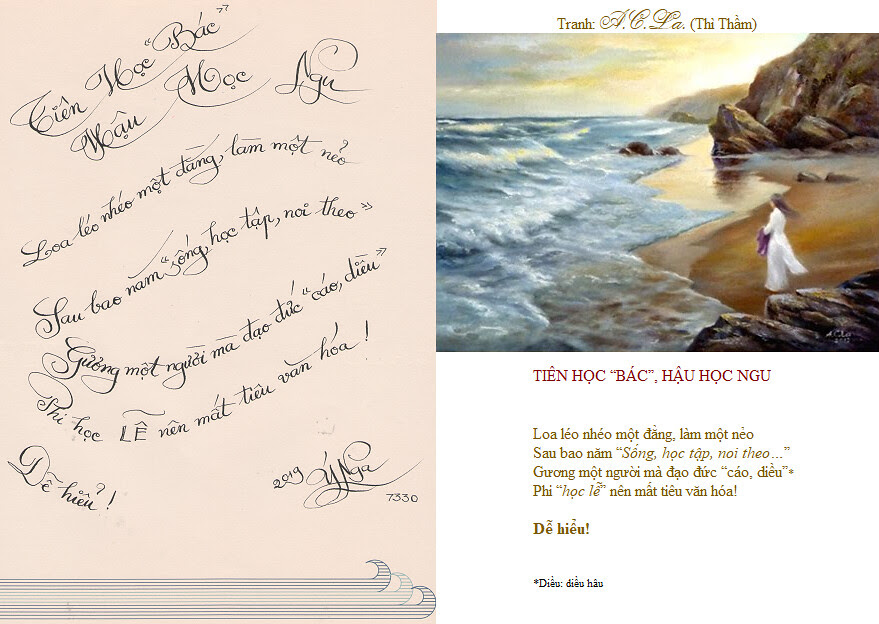 Tiên Học “Bác”
Hậu Học Ngu
Loa léo nhéo một đằng, làm một nẻo
Sau bao năm “sống, học tập, noi theo”
Gương một người mà đạo đức “cáo, diều”
Phi học LỄ nên mất tiêu văn hóa!
Dễ hiểu!
2019 Ý Nga
7330
Tranh: A.C.La. (Thì Thầm)
A.C.La
2012
TIÊN HỌC “BÁC”, HẬU HỌC NGU
Loa léo nhéo một đằng, làm một nẻo
Sau bao năm “Sống, học tập, noi theo…”
Gương một người mà đạo đức “cáo, diều”*
Phi “học lễ” nên mất tiêu văn hóa!
Dễ hiểu!
*Diều: diều hâu